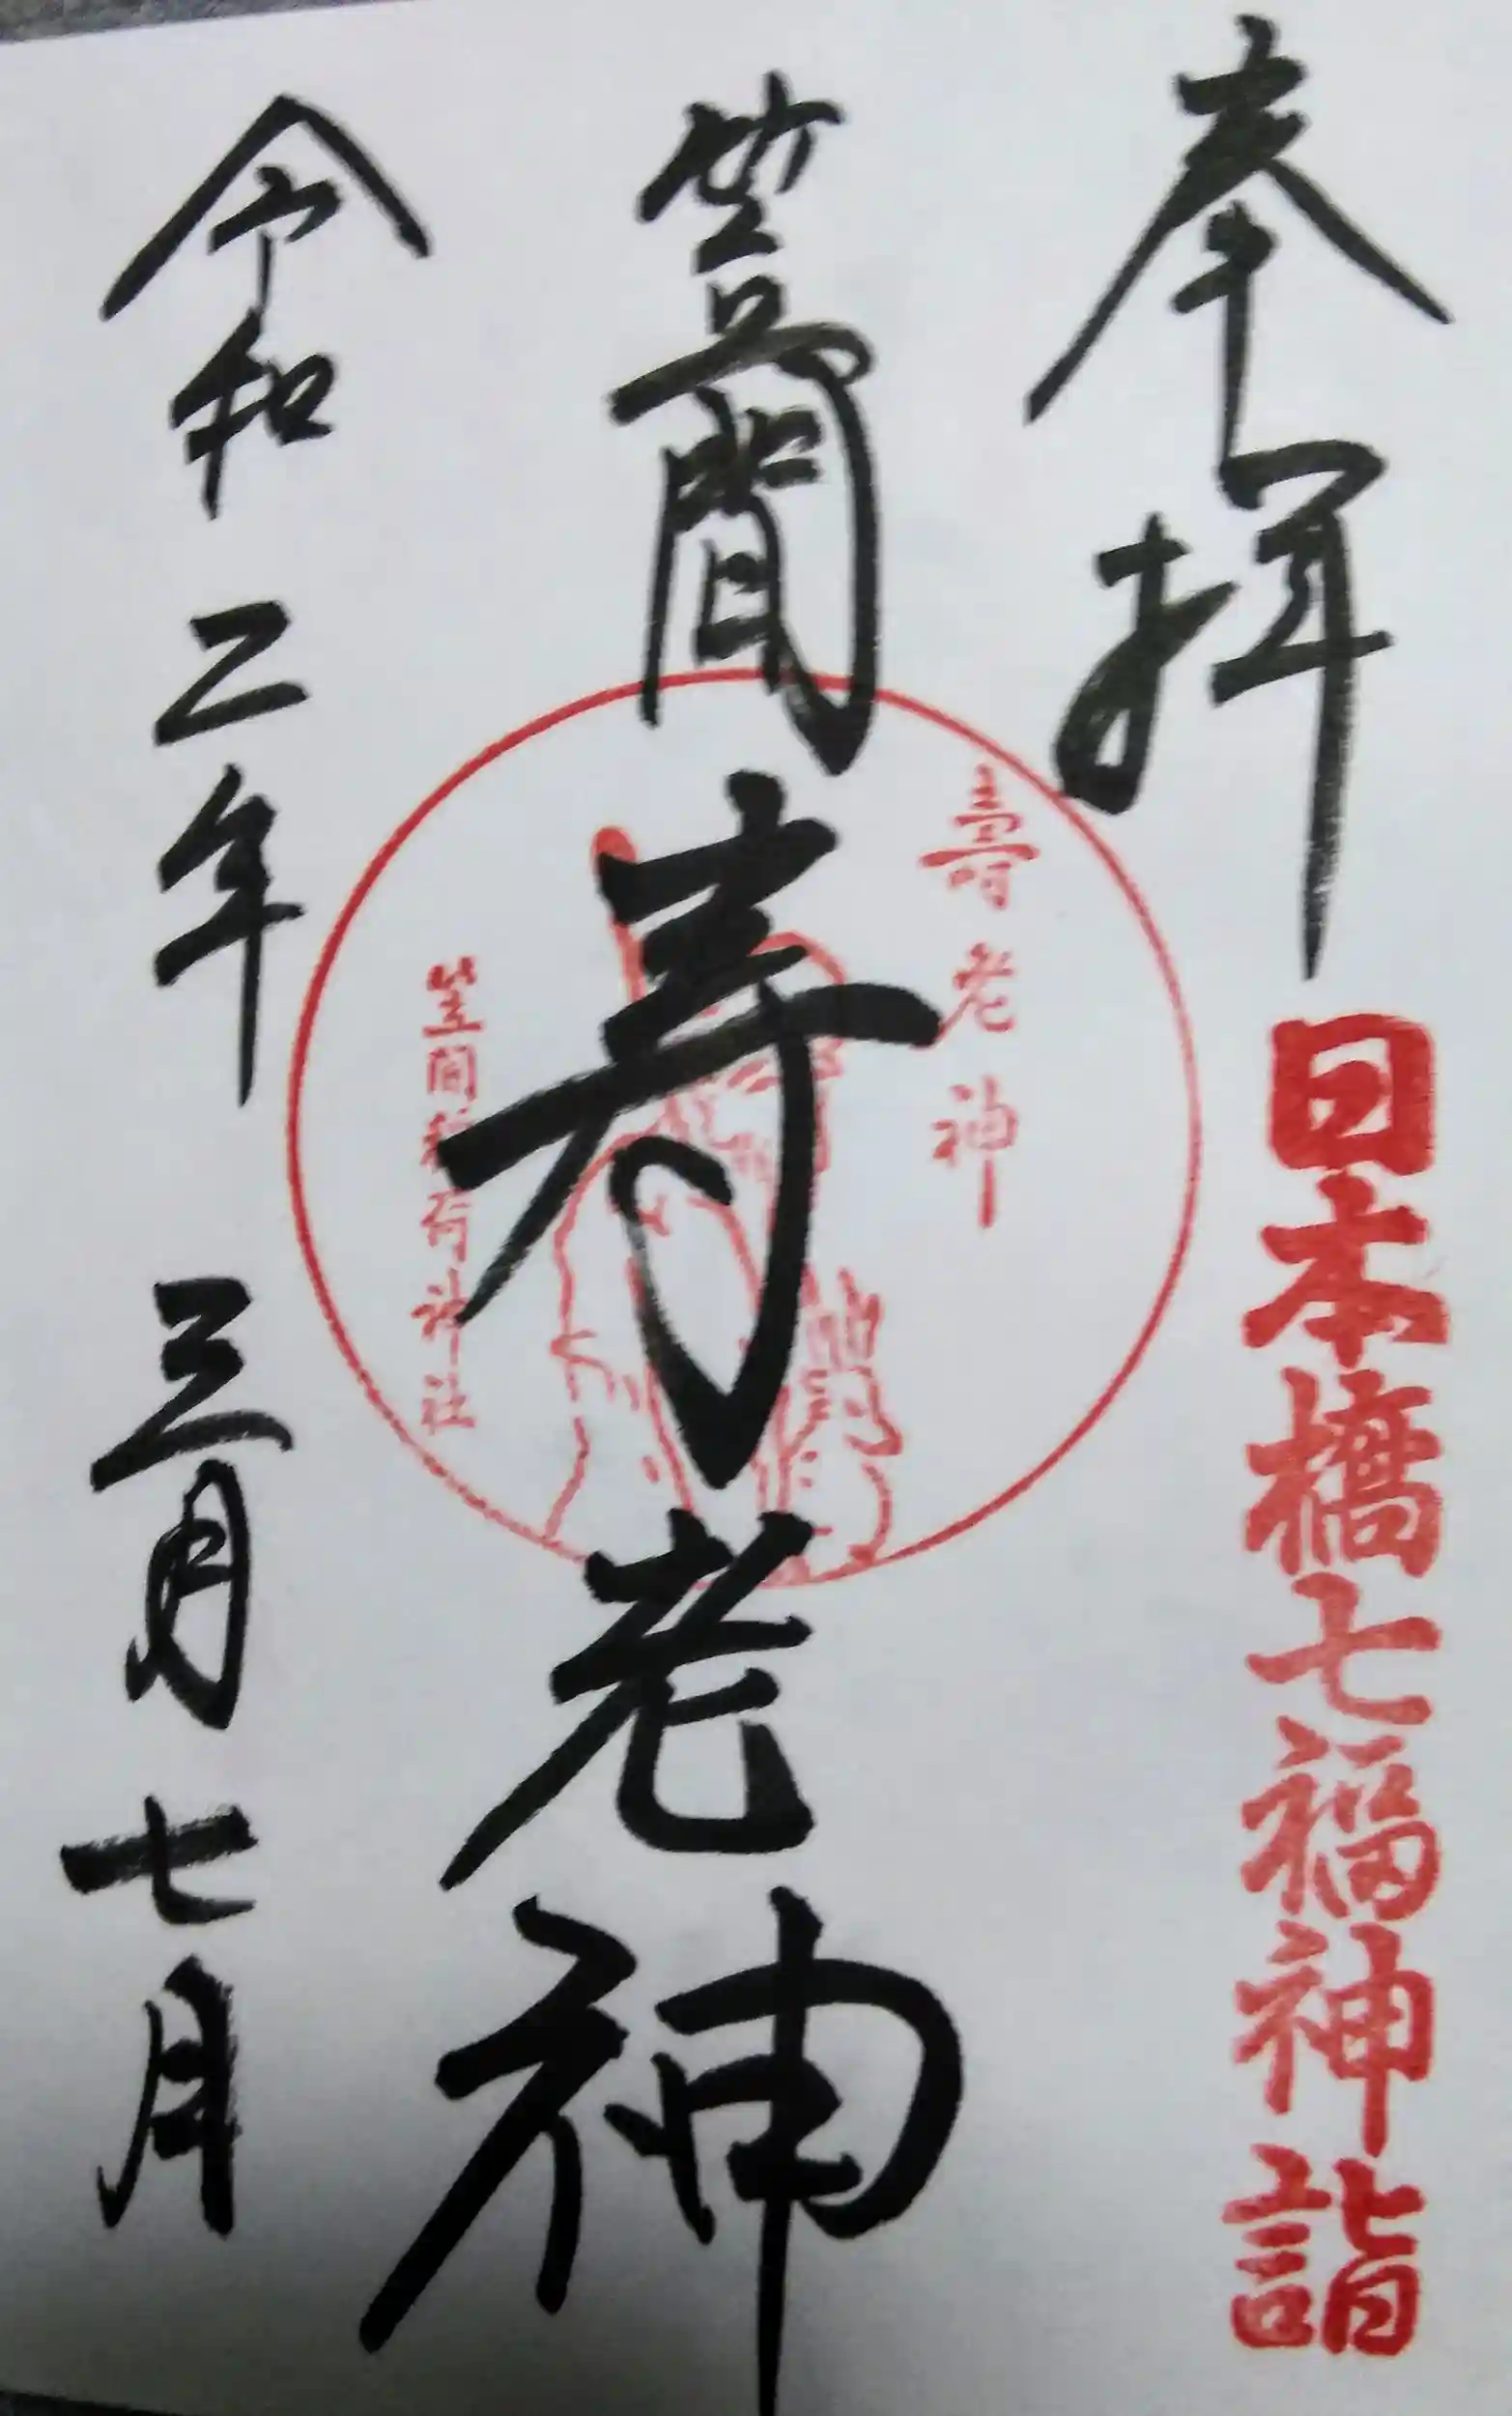 奉拝
日本橋七福神詣
笠間寿老神
壽老神
笠間稲荷神社
令和二年三月七日